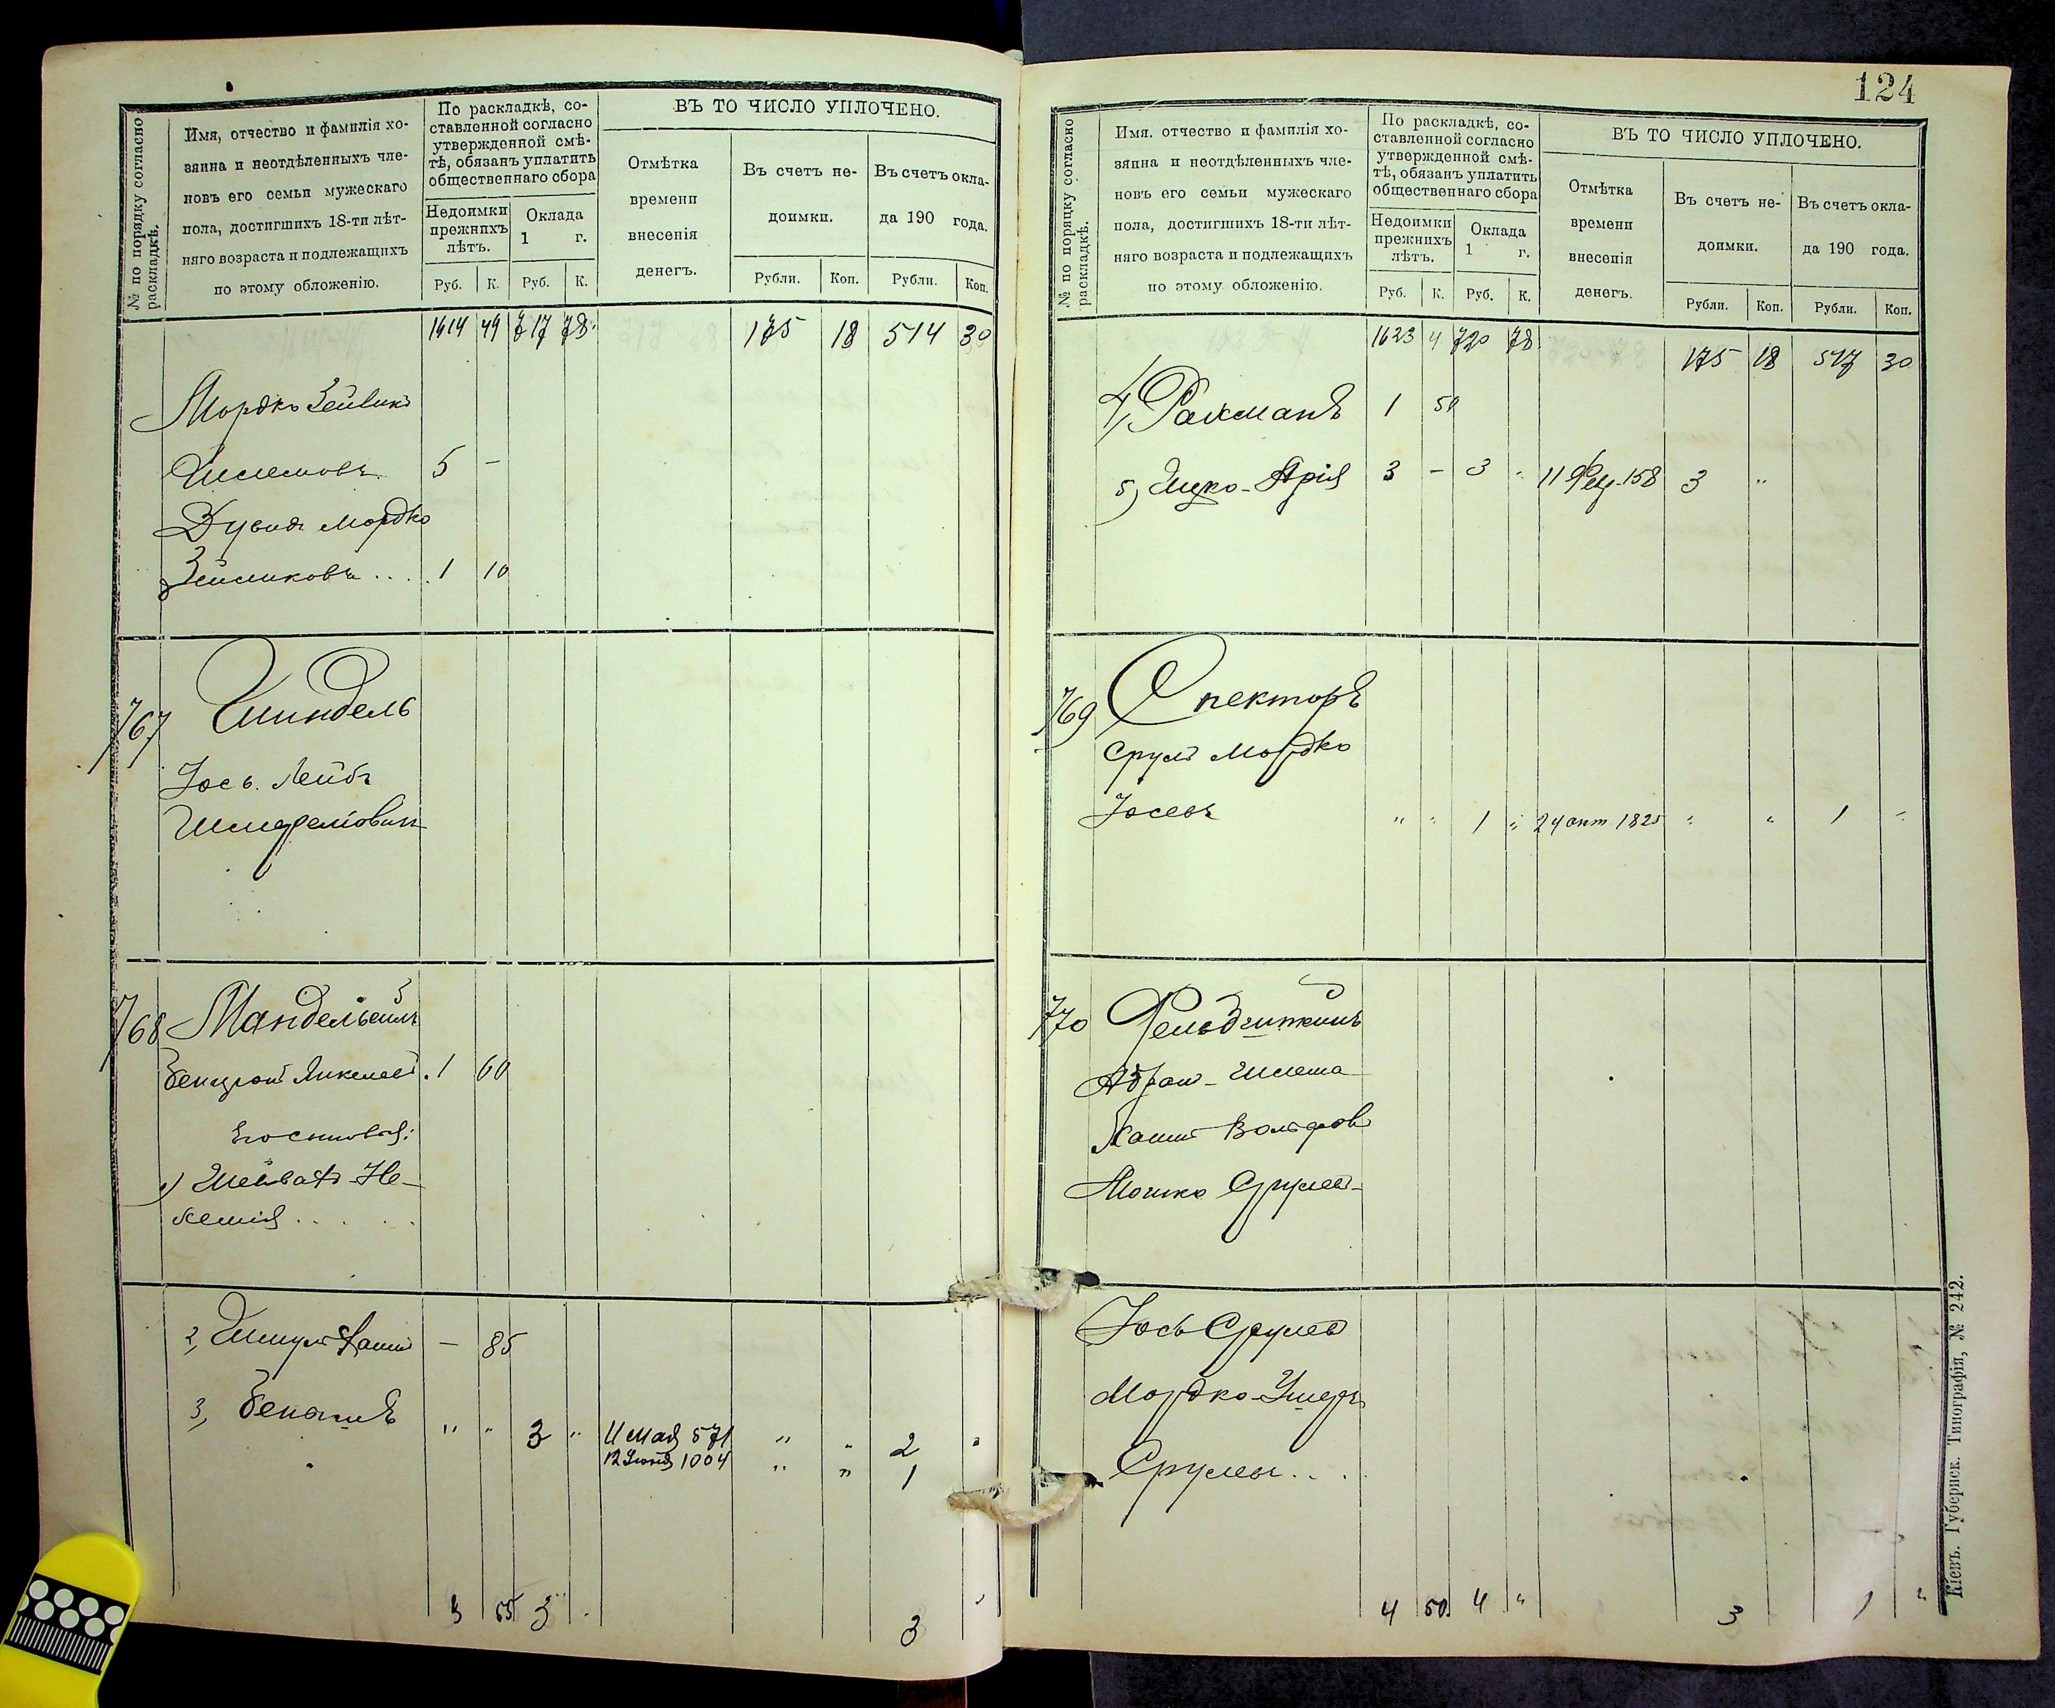 № по порядку согласно раскладкѣ.
Имя, отчество и фамилія хо-
зяина и неотдѣленныхъ чле-
новъ его семьи мужескаго
пола, достигшихъ 18-ти лѣт-
няго возраста и подлежащихъ
по этому обложенію.
По раскладкѣ, со-
ставленной согласно
утвержденной смѣ-
тѣ, обязанъ уплатить
общественнаго сбора
Недоимки
прежнихъ
лѣтъ.
Оклада
1 г.
Руб. К. Руб. К.
ВЪ ТО ЧИСЛО УПЛОЧЕНО.
Отмѣтка
времени
внесенія
денегъ.
Въ счетъ не-
доимки.
Въ счетъ окла-
да 190 года.
Рубли. Коп. Рубли. Коп.
1614 49 717 78 175 18 514 30
Мордко
5 -
Дувидъ Мордко
1 10
767 Шиндель
Іось Лейбъ
768
1 60
2, 85
3, " " 3 " 11 мая 571 " " 2 "
12 Іюня 1004 " " 1
3 55 3 3
124
№ по порядку согласно раскладкѣ.
Имя. отчество и фамилія хо-
зяина и неотдѣленныхъ чле-
новъ его семьи мужескаго
пола, достигшихъ 18-ти лѣт-
няго возраста и подлежащихъ
по этому обложенію.
По раскладкѣ, со-
ставленной согласно
утвержденной смѣ-
тѣ, обязанъ уплатить
общественнаго сбора
Недоимки
прежнихъ
лѣтъ.
Оклада
1 г.
Руб. К. Руб. К.
ВЪ ТО ЧИСЛО УПЛОЧЕНО.
Отмѣтка
времени
внесенія
денегъ.
Въ счетъ не-
доимки.
Въ счетъ окла-
да 190 года.
Рубли. Коп. Рубли. Коп.
1623 4 720 78 175 18 517 30
4, Рахманъ 1 50
5, Ицко-Арія 3 - 3 " 11 158 3 "
769 Спекторъ
Сруль Мордко
Іосевъ " " 1 " 24 окт 1825 " " 1 "
770
Абрам-Шлема
Хаимъ Вольфов
Мошко Срулев
Іось Срулев
Мордко-Ушеръ
Срулевъ
4 50 4 " 3 1 "
Кіевъ. Губернск. Типографія, № 242.